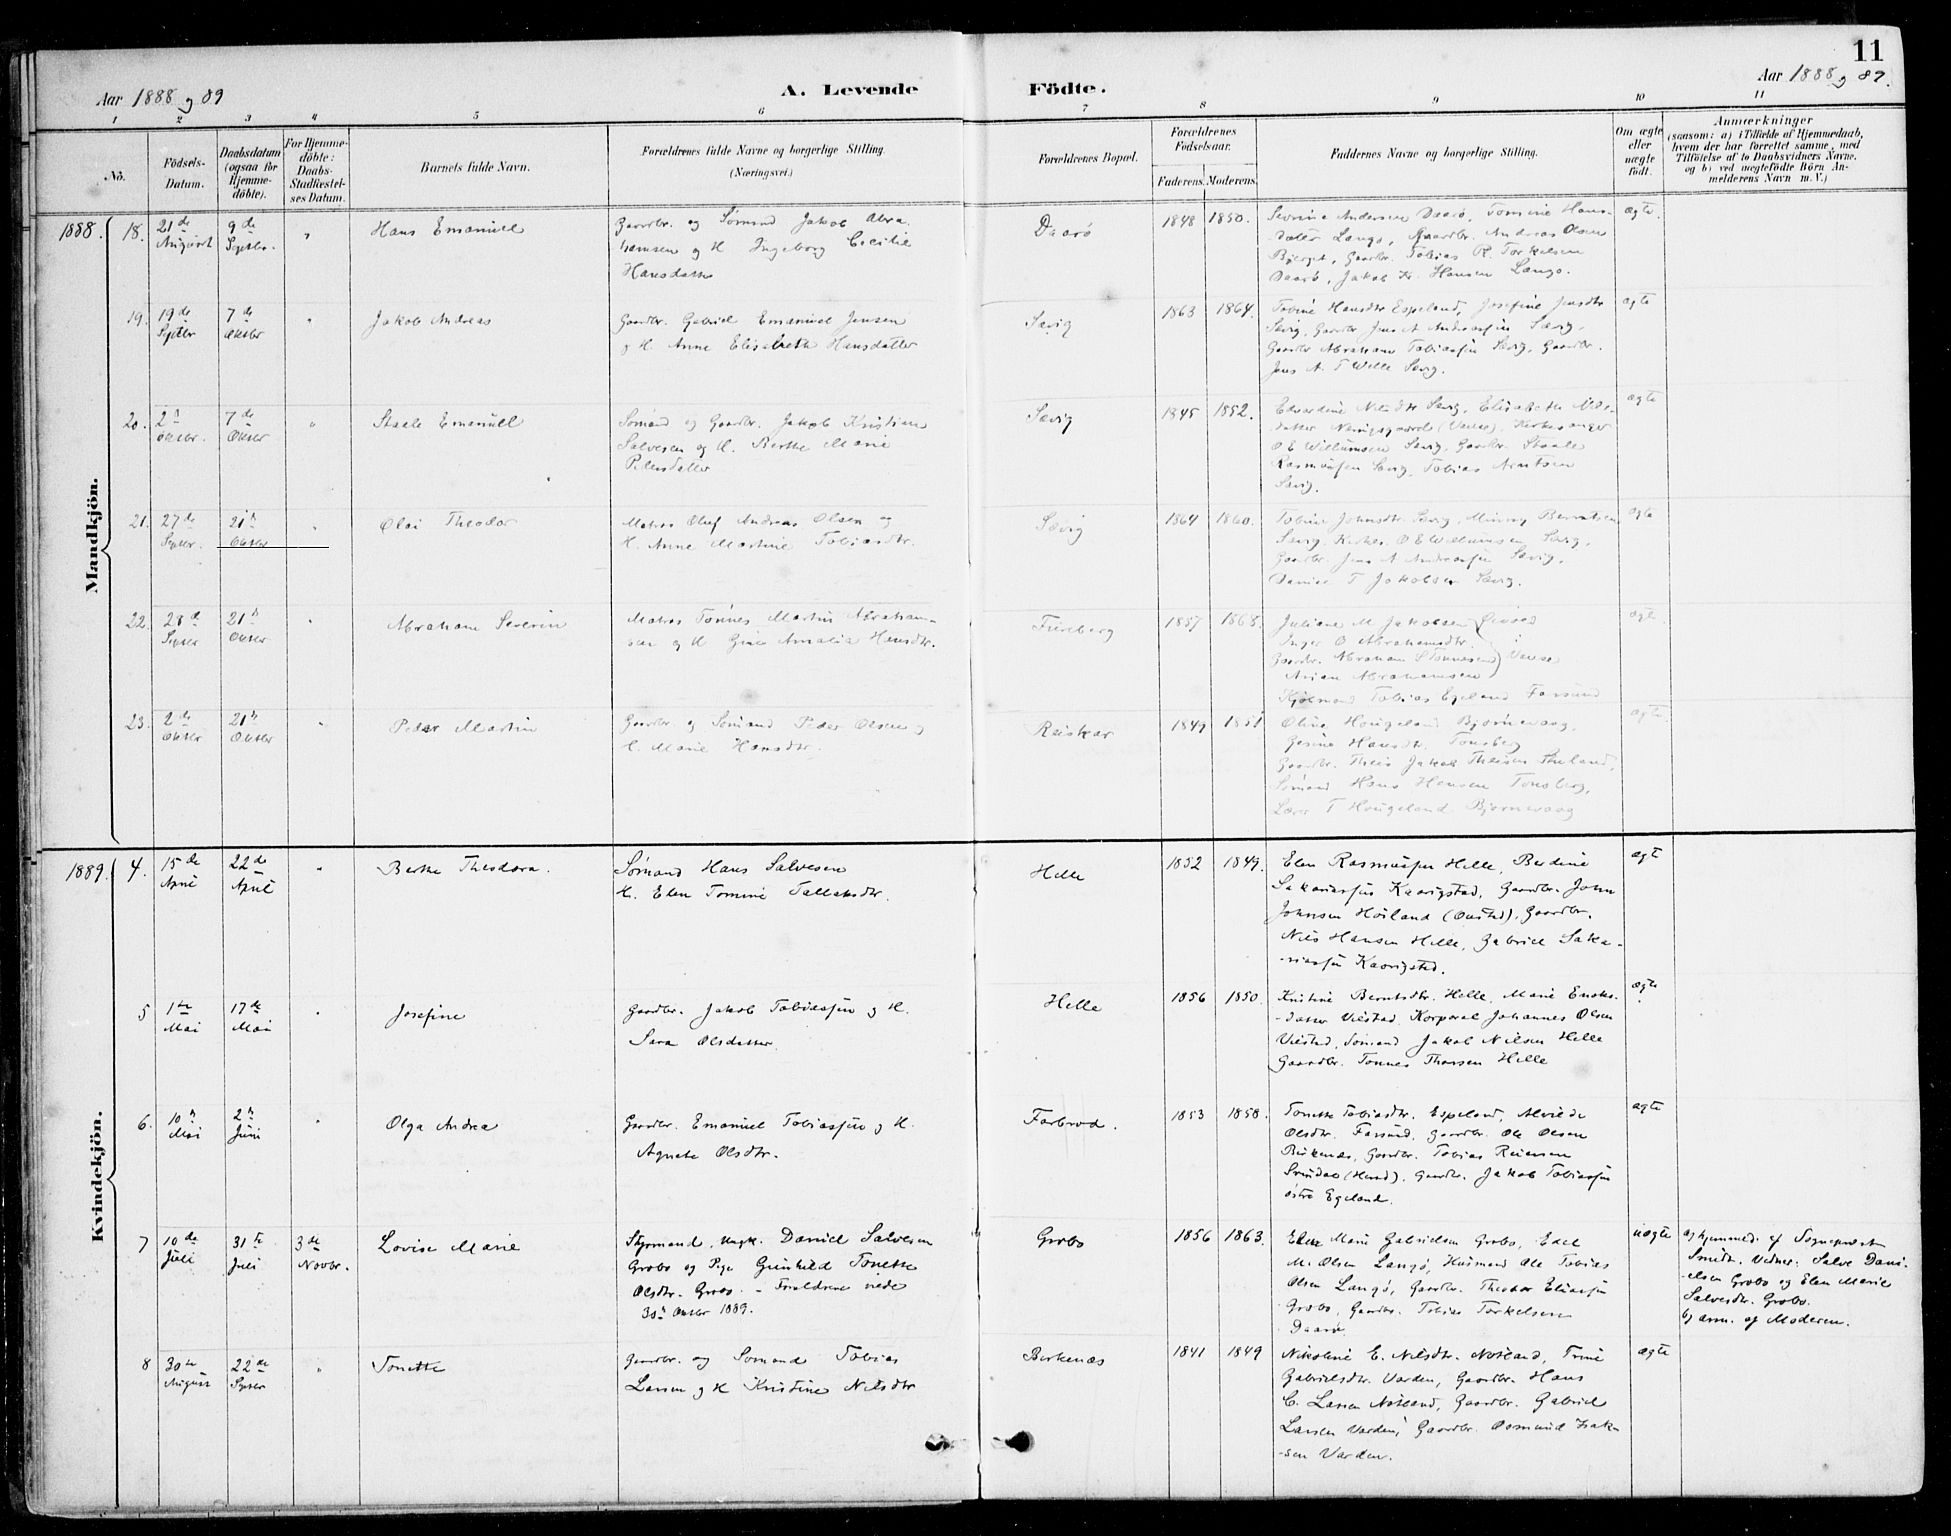 11
Aar 1888 og 89
A. Levende
Födte.
Aar 1888 og 89.
1 2 3 4 5 6 7 8 9 10 11
No.
Födsels-
Datum.
Daabsdatum
(ogsaa for
Hjemme-
döbte).
For Hjemme-
döbte:
Daabs-
Stadfæstel-
ses Datum.
Barnets fulde Navn.
Forældrenes fulde Navne og borgerlige Stilling.
(Næringsvei.)
Forældrenes Bopæl.
Forældrenes
Födselsaar.
Faderens. Moderens.
Faddernes Navne og borgerlige Stilling.
Om ægte
eller
uægte
födt.
Anmærkninger
(saasom: a) i Tilfælde af Hjemmedaab,
hvem der har forrettet samme, med
Tilföielse af to Daabsvidners Navne.
og b) ved uægtefödte Börn An-
melderens Navn m. V.)
Mandkjön.
1888. 18. 21de August
9de Septbr.
"
Hans Emanuel
Gaardbr. og Sømand Jakob Abra-
hamsen og H. Ingeborg Cecilie
Hansdatter
Daarø
1848 1850.
Severine Andersen Daarø, Tomine Hans-
datter Langø, Gaardbr. Andreas Olsen
Bjerget, Gaardbr. Tobias R. Torkelsen
Daarø, Jakob Kr. Hansen Langø.
ægte.
19. 19de Septbr
7de Oktbr
"
Jakob Andreas
Gaardbr. Gabriel Emanuel Jensen
og H. Anne Elisabeth Hansdatter
Sævig
1863 1864.
Tobine Hansdtr Espeland, Josefine Jensdtr
Sævig, Gaardbr Jens A Andreassen Sævig,
Gaardbr Abraham Tobiassen Sævig, Gaardbr.
Jens A. T Welle Sævig.
ægte
20. 2d Oktbr.
7de Oktbr
"
Staale Emanuel
Sømand og Gaardbr. Jakob Kristian
Salvesen og H. Berthe Marie
Pedersdatter
Sævig
1845 1852.
Edvardine Nilsdtr Sævig, Elisabeth Nils-
datter (Vanse), Kirkesanger
O E Willumsen Sævig, Gaardbr. Staale
Rasmussen Sævig, Tobias Arntsen
Sævig.
ægte
21. 27de Septbr.
21d Oktbr
"
Olai Theodor
Matros Oluf Andreas Olsen og
H. Anne Martine Tobiasdtr.
Sævig
1864 1860.
Tobine Johnsdtr Sævig, Minny Berntsen
Sævig, Kirkes. O E Willumsen Sævig,
Gaardbr. Jens A Andreassen Sævig,
Daniel T Jakobsen Sævig.
ægte
22. 28d Septbr
21d Oktbr
"
Abraham Severin
Matros Tønnes Martin Abraham-
sen og H Gine Amalia Hansdtr.
Fureberg
1857 1868.
Juliane M Jakobsen
Inger O Abrahamsdtr.
Gaardbr. Abraham S Tønnesen
Arian Abrahamsen
Vanse
Kjøbmand Tobias Egeland Farsund
ægte
23. 2de Oktbr
21d Oktbr
"
Peder Martin
Gaardbr. og Sømand Peder Olsen og
H. Marie Hansdtr.
Reiskar
1849 1851
Oline Hougeland Bjørnevaag,
Gesine Hansdtr. Tonsberg
Gaardbr. Theis Jakob Theisen
Sømand Hans Hansen Tonsberg,
Lærer T Hougeland Bjørnevaag
ægte
Kvindekjön.
1889. 4. 15de April
22de April
"
Berthe Theodora.
Sømand Hans Salvesen
H. Elen Tomine Tallaksdtr.
Helle
1852 1849.
Elen Rasmussen Helle, Berdine
Sakariassen Kaarigstad, Gaardbr. John
Johnsen Høiland (Øusted), Gaardbr.
Nils Hansen Helle, Gabriel Saka-
riassen Kaarigstad.
ægte
5 1te Mai
17de Mai
"
Josefine
Gaardbr. Jakob Tobiassen og H.
Sara Olsdatter
Helle
1856 1850.
Kristine Berntsdtr. Helle, Marie Enoks-
datter Vilstad, Korporal Johannes Olsen
Vilstad, Sømand Jakob Nilsen Helle
Gaardbr. Tønnes Thorsen Helle
ægte
6. 10d Mai
2d Juni
"
Olga Andrea
Gaardbr. Emanuel Tobiassen og H.
Agnete Olsdtr.
Farbrod.
1853 1858.
Tonette Tobiasdtr. Espeland, Alvilde
Olsdtr. Farsund, Gaardbr. Ole Olsen
Birkenæs, Gaardbr. Tobias Reiersen
Svindal (Herad), Gaardbr. Jakob Tobiassen
østre Egeland.
ægte
7 10de Juli
31te Juli
3de Novbr.
Lovise Marie
Styrmand, Ungk. Daniel Salvesen
Grobo og Pige Gunhild Tonette
Olsdtr. Grobo. - Forældrene viede
30d Oktbr 1889.
Grobo
1856 1863.
Elen Marie Gabrielsen Grobo, Edel
M. Olsen Langø, Husmand Ole Tobias
Olsen Langø, Gaardbr. Theodor Eliassen
Grobo, Gaardbr. Tobias Torkelsen
Daarø
uægte
a) hjemmed. af Sognepræst
Smidt. Vidner: Salve Dani-
elsen Grobo og Elen Marie
Salvesdtr. Grobo.
b) anm. af Moderen.
8 30te August
22de Septbr
"
Tonette
Gaardbr. og Sømand Tobias
Larsen og H Kristine Nilsdtr
Berkenæs
1841 1849
Nikoline E. Nilsdtr. Nøtland, Trine
Gabrielsdtr. Varden, Gaardbr. Hans
C. Larsen Nøtland, Gaardbr. Gabriel
Larsen Varden, Gaardbr. Osmund Isak-
sen Varden.
ægte